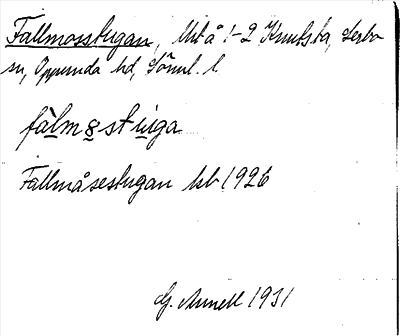 Fallmosstugan, Utå 1-2 Knutsta, Lerbo
sn, Oppunda hd, Söml. l.
fàlm8stùga
Fallmåsestugan kb 1926
G. Annell 1931